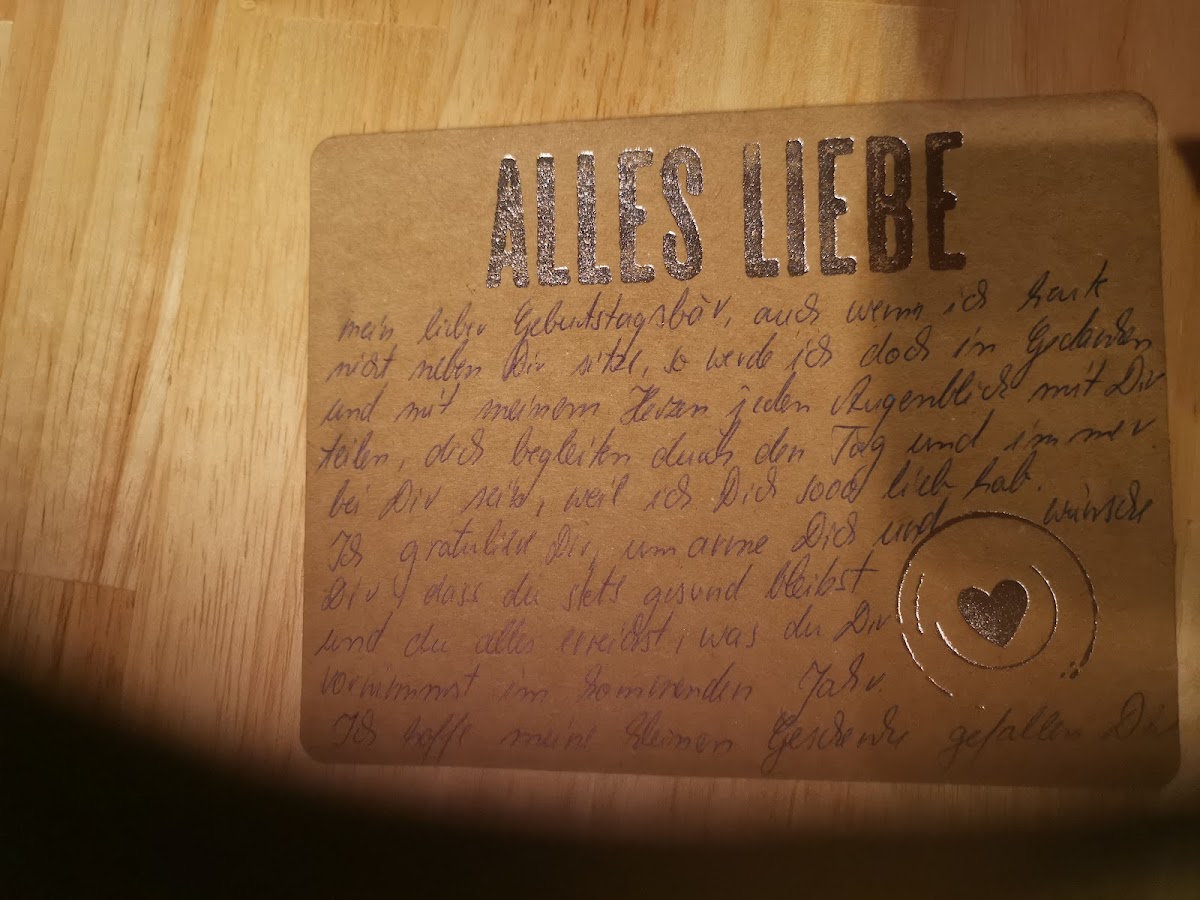 ALLES LIEBE
mein lieber Geburtstagsbär, auch wenn ich heut
nicht neben Dir sitze, so werde ich doch in Gedanken
und mit meinem Herzen jeden Augenblick mit Dir
teilen, dich begleiten durch den Tag und immer
bei Dir sein, weil ich Dich sooo lieb hab.
Ich gratuliere Dir, umarme Dich und wünsche
Dir, dass du stets gesund bleibst
und du alles erreichst, was du Dir
vornimmst im kommenden Jahr.
Ich hoffe meine kleinen Geschenke gefallen Dir